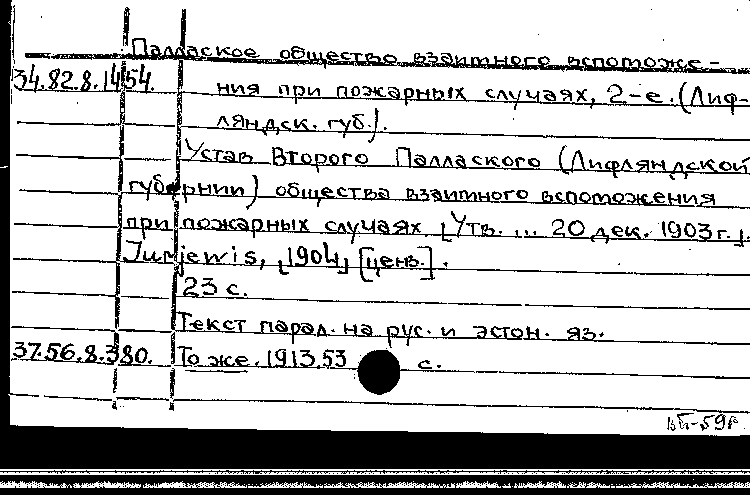 Палласкoе общество взаимного вспоможе-
34.82.8.1454. ния при пожарных случаях, 2-е. (Лиф-
ляндск. губ.).
Устав Второго Паллаского (Лифляндской
губернии) общества взаимного вспоможения
при пожарных случаях. [Утв. ... 20 дек. 1903 г.].
Jurjewis, [1904] [ценз.].
23 с.
Текст парал. на рус. и эстон. яз.
37.56.8.380. То же. 1913. 53 с.